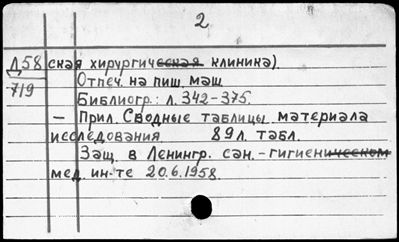 2
Д58 ская хирургическая клиника).
719 Отпеч. на пиш. маш.
Библиогр.: л. 342-375.
— Прил. Сводные таблицы материала
исследования. 89 л. табл.
Защ. в Ленингр. сан.-гигиеническом
мед. ин-те 20.6.1958.